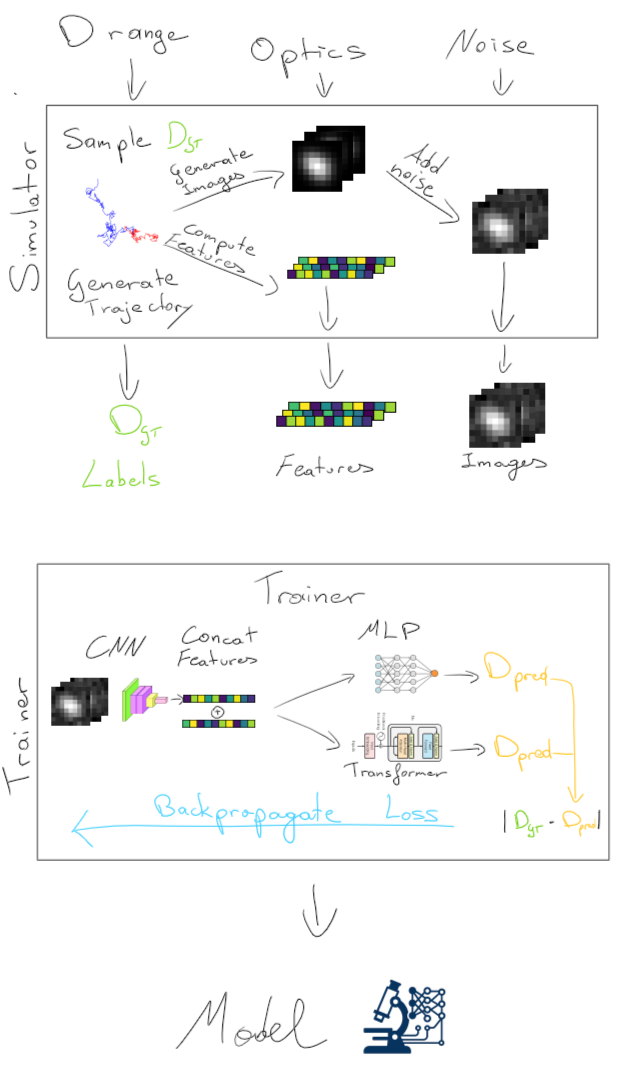 D range
Optics
Noise
Simulator
Sample D_GT
Generate
Images
Add
noise
Compute
Features
Generate
Trajectory
D_GT
Labels
Features
Images
Trainer
Trainer
CNN
Concat
Features
MLP
D_pred
D_pred
Transformer
Backpropagate Loss
|D_GT - D_pred|
Model